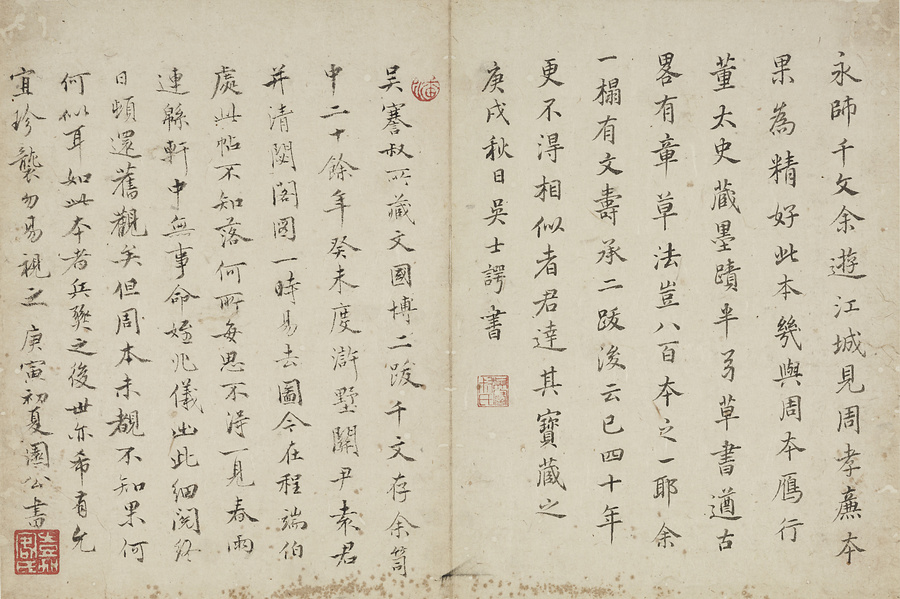 永師千文余遊江城見周孝廉本
果為精好此本幾與周本鴈行
董太史藏墨蹟半與草書遒古
畧有章草法豈八百本之一耶余
一榻有文壽承二跋後云已四十年
更不得相似者君達其寶藏之
庚戌秋日吳士諤書
吳謇叔所藏文國博二跋千文存余笥
中二十餘年癸未度滸墅關尹袁君
并清閟閣圖一時易去圖今在程端伯
處此帖不知落何所每思不得一見春雨
連緜軒中無事命姪兆儀出此細閱終
日頓還舊觀矣但周本未覩不知果何
何似耳如此本者兵燹之後世亦希有允
宜珍襲勿易視之庚寅初夏園公書